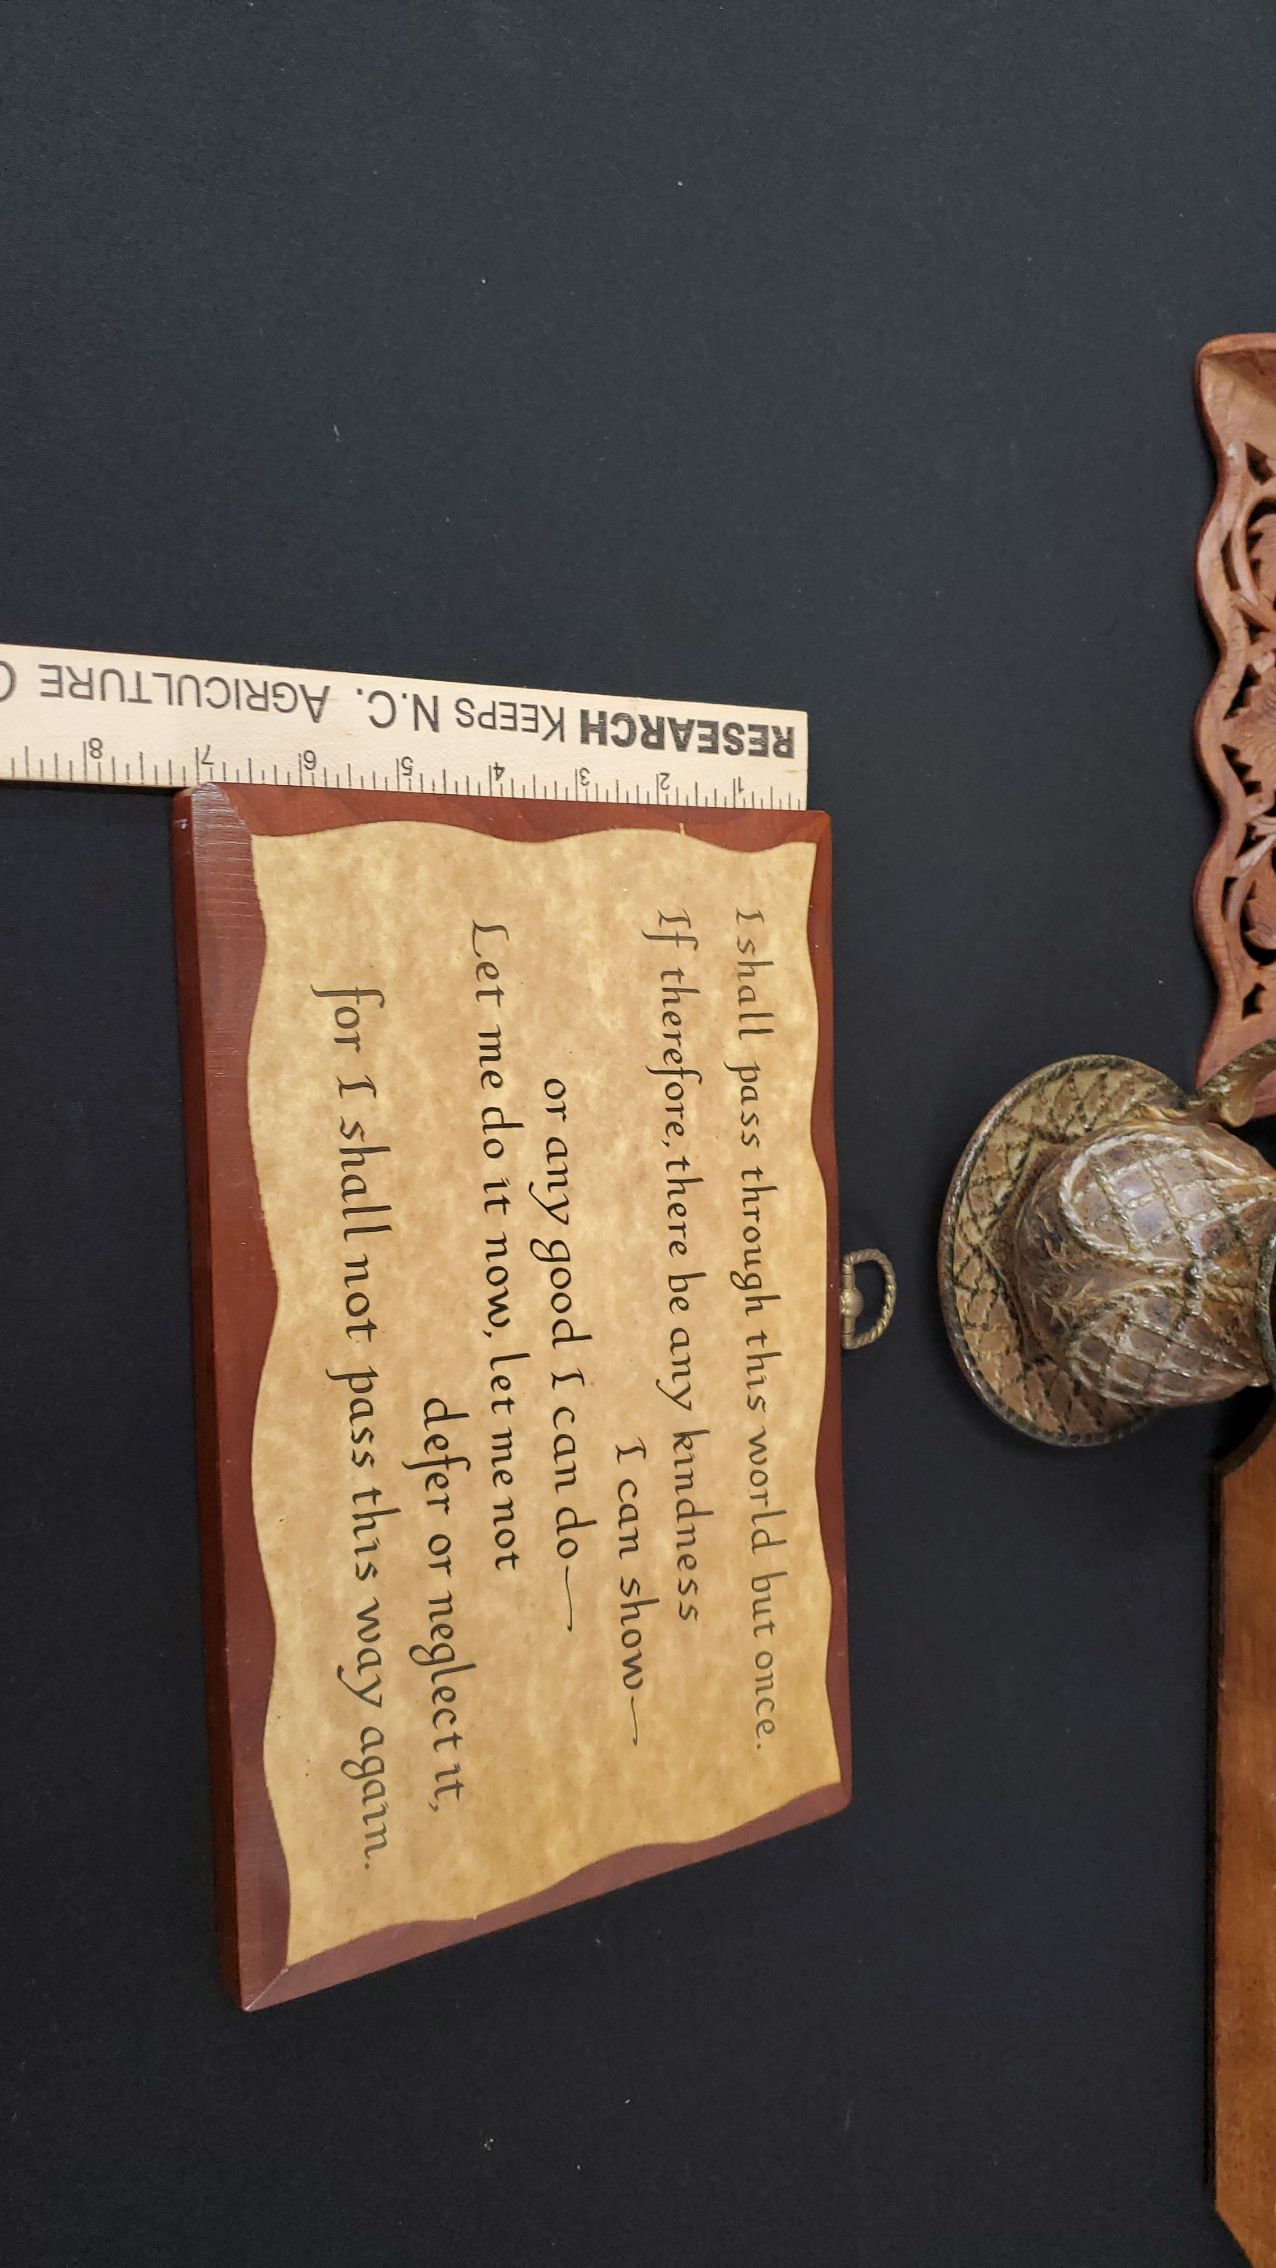 I shall pass through this world but once.
If therefore, there be any kindness
I can show—
or any good I can do—
Let me do it now, let me not
defer or neglect it,
for I shall not pass this way again.
RESEARCH KEEPS N.C. AGRICULTURE
1 2 3 4 5 6 7 8